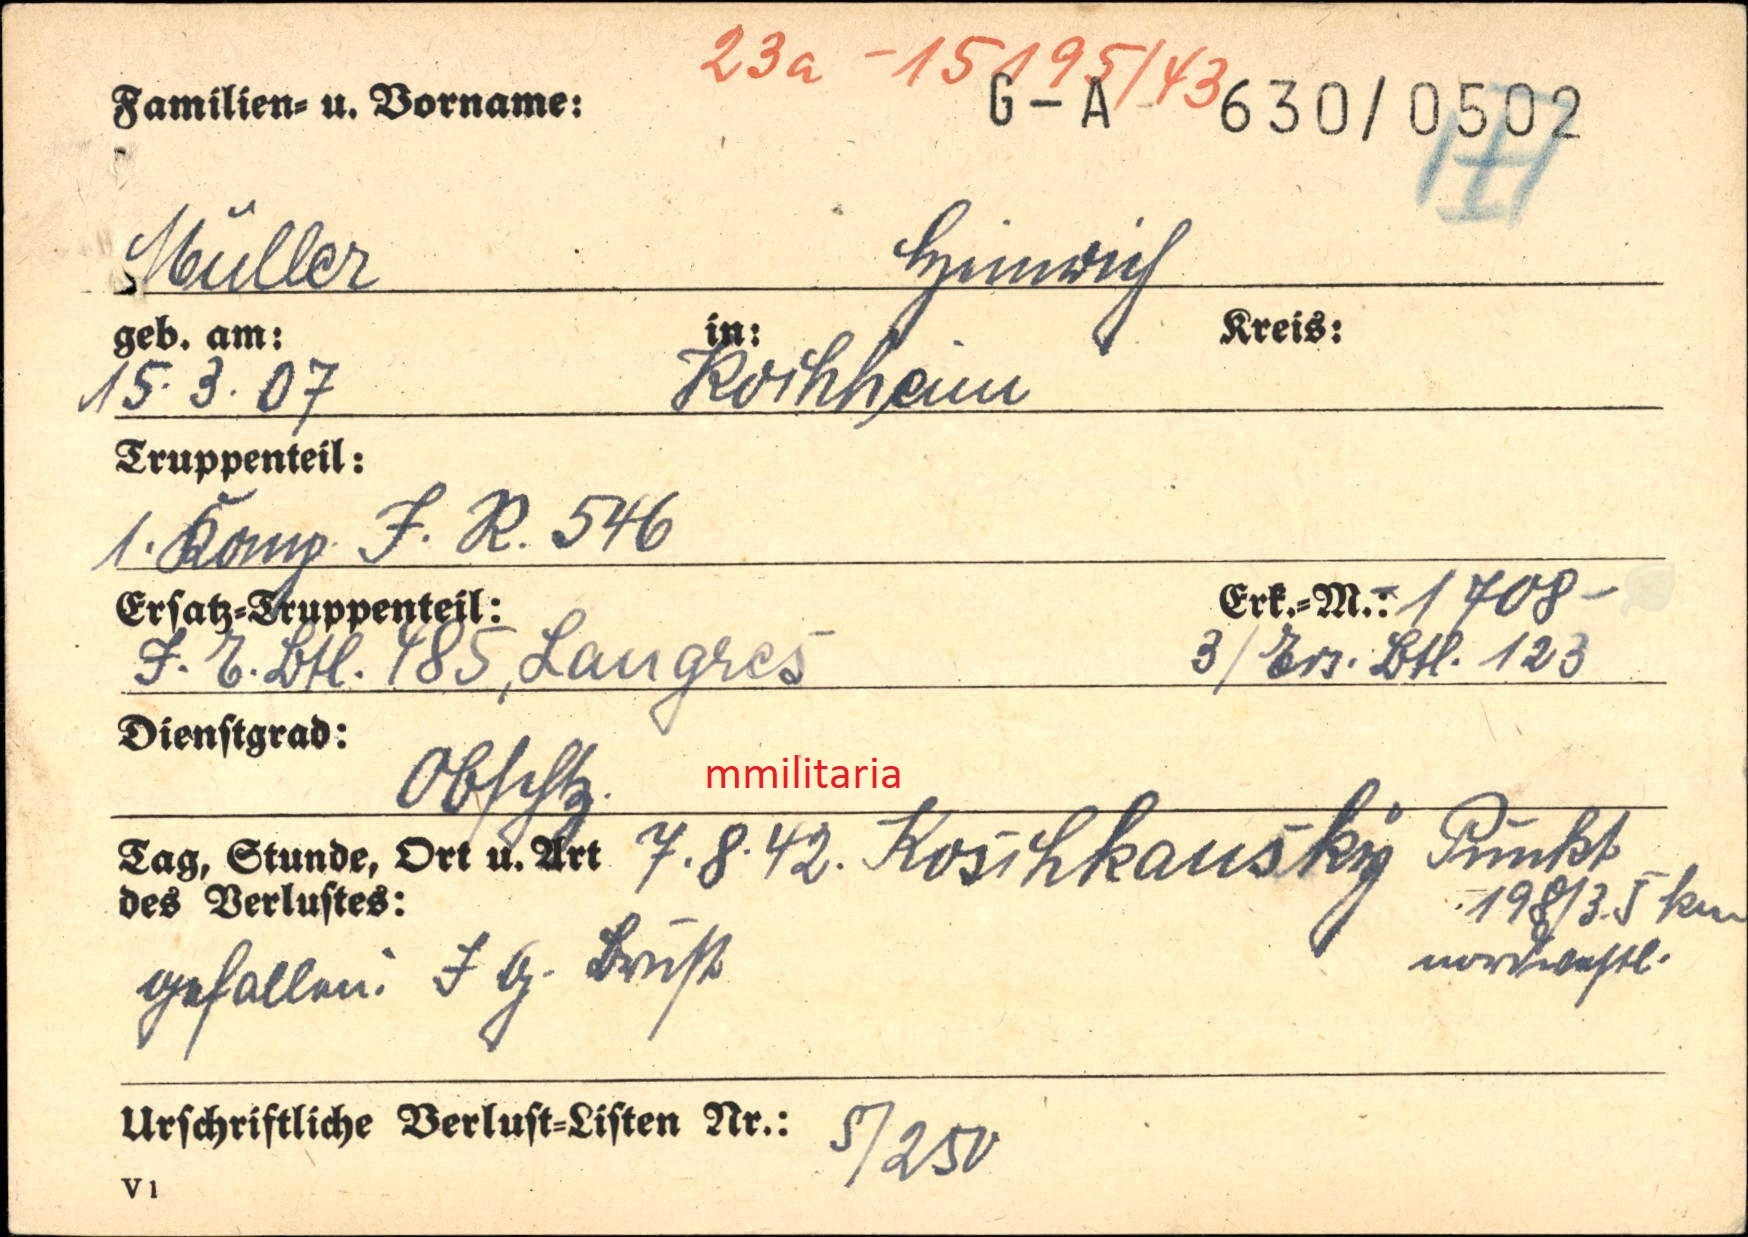 23a - 15195/43
Familien- u. Vorname: G-A 630/0502
Müller Heinrich
geb. am: in: Kreis:
15. 3. 07 Kochheim
Truppenteil:
1. Komp. J. R. 546
Ersatz-Truppenteil: Erk.-M.: - 1708 -
J. E. Btl. 485, Langres 3/ Ers. Btl. 123
Dienstgrad:
Obschtz.
mmilitaria
Tag, Stunde, Ort u. Art 7. 8. 42. Koschkansky Punkt
des Verlustes: 198/3. 5 km
nordwestl.
gefallen: J G. Brust
Urschriftliche Verlust-Listen Nr.: 5/250
V 1